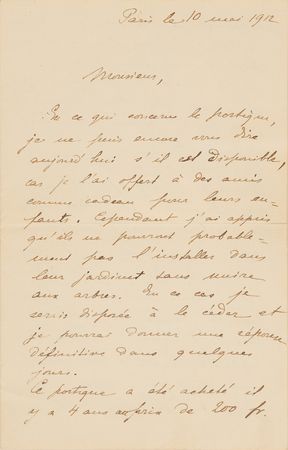 Paris le 10 mai 1912
Monsieur,
En ce qui concerne le portique,
je ne puis encore vous dire
aujourd'hui s'il est disponible,
car je l'ai offert à des amis
comme cadeau pour leurs en-
fants. Cependant j'ai appris
qu'ils ne pourront probable-
ment pas l'installer dans
leur jardinet sans nuire
aux arbres. En ce cas je
serais disposée à le céder et
je pourrai donner une réponse
définitive dans quelques
jours.
Ce portique a été acheté il
y a 4 ans au prix de 200 fr.